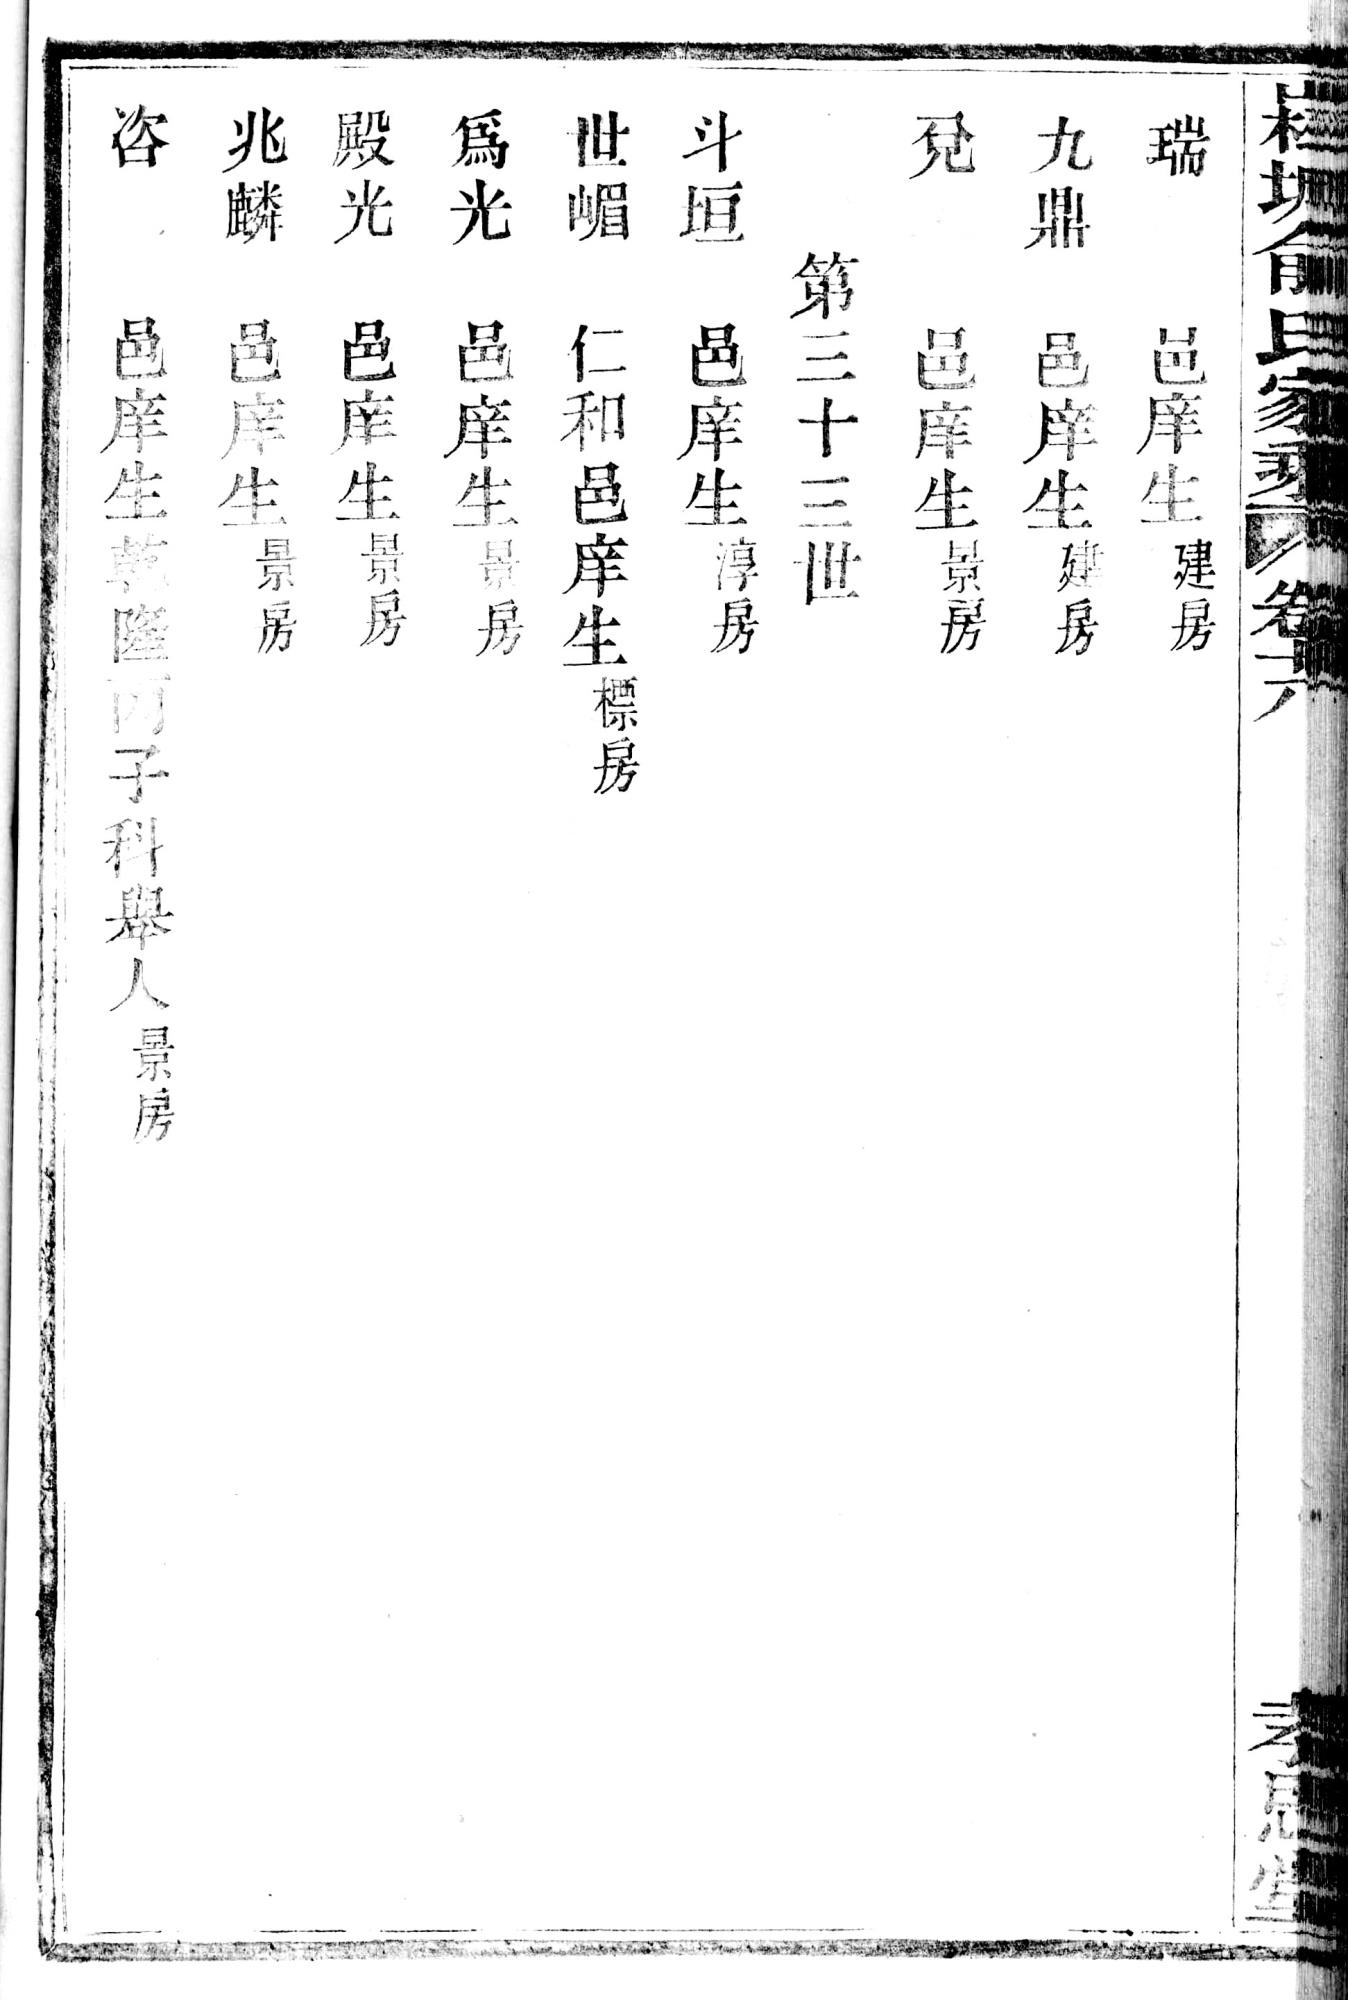 俞氏家乘 卷六
孝思堂
瑞 邑庠生 建房
九鼎 邑庠生 建房
兌 邑庠生 景房
第三十三世
斗垣 邑庠生 淳房
世嵋 仁和邑庠生 標房
爲光 邑庠生 景房
殿光 邑庠生 景房
兆麟 邑庠生 景房
咨 邑庠生乾隆丙子科舉人 景房